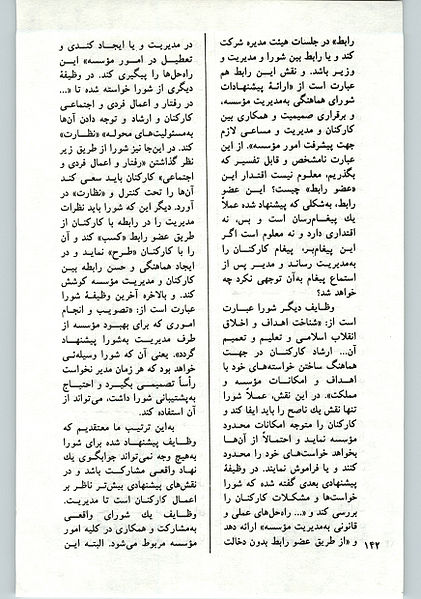 رابط» در جلسات هیئت مدیره شرکت
کند و یا رابط بین شورا و مدیریت و
وزیر باشد. و نقش این رابط هم
عبارت است از «ارائهٔ پیشنهادات
شورای هماهنگی به‌مدیریت مؤسسه،
و برقراری صمیمیت و همکاری بین
کارکنان و مدیریت و مساعی لازم
جهت پیشرفت امور مؤسسه». از این
عبارت نامشخص و قابل تفسیر که
بگذریم، معلوم نیست اقتدار این
«عضو رابط» چیست؟ این عضو
رابط، به‌شکلی که پیشنهاد شده عملاً
یك پیغام‌رسان است و بس، نه
اقتداری دارد و نه معلوم است اگر
این پیغام‌بر، پیغام کارکنان را
به‌مدیریت رساند و مدیر پس از
استماع پیغام به‌آن توجهی نکرد چه
خواهد شد؟
وظایف دیگر شورا عبارت
است از: «شناخت اهداف و اخلاق
انقلاب اسلامی و تعلیم و تعمیم
آن... ارشاد کارکنان در جهت
هماهنگ ساختن خواسته‌های خود با
اهداف و امکانات مؤسسه و
مملکت». در این نقش، عملاً شورا
تنها نقش یك ناصح را باید ایفا کند و
کارکنان را متوجه امکانات محدود
مؤسسه نماید و احتمالاً از آن‌ها
بخواهد خواست‌های خود را محدود
کنند و یا فراموش نمایند. در وظیفهٔ
پیشنهادی بعدی گفته شده که شورا
خواست‌ها و مشکلات کارکنان را
بررسی کند و «... راه‌حل‌های عملی و
قانونی به‌مدیریت مؤسسه» ارائه دهد
و «از طریق عضو رابط بدون دخالت
در مدیریت و یا ایجاد کندی و
تعطیل در امور مؤسسه» این
راه‌حل‌ها را پیگیری کند. در وظیفهٔ
دیگری از شورا خواسته شده تا «...
در رفتار و اعمال فردی و اجتماعی
کارکنان و ارشاد و توجه دادن آن‌ها
به‌مسئولیت‌های محوله» «نظارت»
کند. در این‌جا نیز شورا از طریق زیر
نظر گذاشتن «رفتار و اعمال فردی و
اجتماعی» کارکنان باید سعی کند
آن‌ها را تحت کنترل و «نظارت» در
آورد. دیگر این که شورا باید نظرات
مدیریت را در رابطه با کارکنان از
طریق عضو رابط «کسب» کند و آن
را با کارکنان «طرح» نماید و در
ایجاد هماهنگی و حسن رابطه بین
کارکنان و مدیریت مؤسسه کوشش
کند. و بالاخره آخرین وظیفهٔ شورا
عبارت است از: «تصویب و انجام
اموری که برای بهبود مؤسسه از
طرف مدیریت به‌شورا پیشنهاد
گردد». یعنی آن که شورا وسیله‌ئی
خواهد بود که هر زمان مدیر نخواست
رأساً تصمیمی بگیرد و احتیاج
به‌پشتیبانی شورا داشت، می‌تواند از
آن استفاده کند.
به‌این ترتیب ما معتقدیم که
وظایف پیشنهاد شده برای شورا
به‌هیچ وجه نمی‌تواند جوابگوی یك
نهاد واقعی مشارکت باشد و در
نقش‌های پیشنهادی بیش‌تر ناظر بر
اعمال کارکنان است تا مدیریت.
وظایف یك شورای واقعی
به‌مشارکت و همکاری در کلیه امور
مؤسسه مربوط می‌شود. البته این
۱۴۲